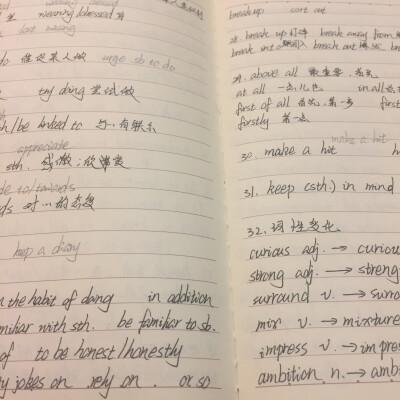 wearing/dressed 穿
lost wearing
do 催促某人做 urge sb to do
try doing 尝试做
h/be linked to 与…有联系
appreciate
sth. 感激；欣赏
de to/towards
ds 对…的态度
keep a diary
n the habit of doing in addition
miliar with sth. be familiar to sb.
of to be honest/honestly
y jokes on rely on . or so
break up sort out
28. break up 打碎 break away from
break into break out
29. above all 最重要，首先
at all 一点儿也 in all
first of all 首先，第一
firstly 第一点
make a hit
30. make a hit
31. keep (sth.) in mind
32. 词性变化
curious adj. → curious
strong adj. → streng
surround v. → surro
mix v. → mixture
impress v. → impres
ambition n. → ambi